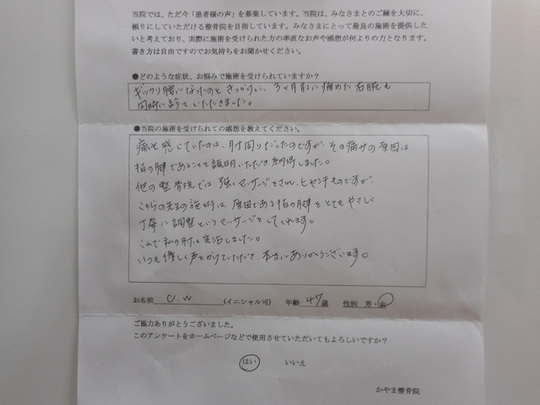 当院では、ただ今「患者様の声」を募集しています。当院は、みなさまとのご縁を大切に、
頼りにしていただける整骨院を目指しています。みなさまにとって最良の施術を提供した
いと考えており、実際に施術を受けられた方の率直なお声や感想が何よりの力となります。
書き方は自由ですのでお気持ちをお聞かせください。
●どのような症状、お悩みで施術を受けられていますか?
ギックリ腰になったのときっかけに、3ヶ月前に痛めた右腕も
同時に診ていただきました。
●当院の施術を受けられての感想を教えてください。
痛を感じていたのは、肘回りだったのですが、その痛みの原因は
指の腱であることを説明いただき納得しました。
他の整骨院では強くマッサージをされ、ヒヤヒヤものですが、
こちらの先生の施術は、原因である指の腱をとてもやさしく
丁寧に調整というマッサージをしてくれます。
これで私の肘は復活しました。
いつも優しく声をかけていただき、本当にありがとうございます。
お名前 U.W (イニシャル可) 年齢 47 歳 性別 男・女
ご協力ありがとうございました。
このアンケートをホームページなどで使用させていただいてもよろしいですか?
はい いいえ
かやま整骨院